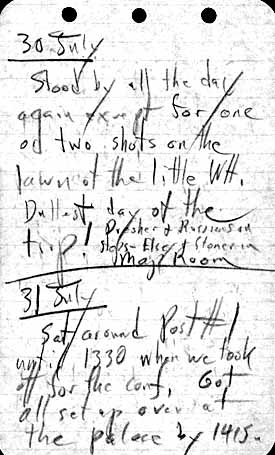 30 July
Stood by all the day
again except for one
or two shots on the
lawn of the little WH.
Dullest day of the
trip!
Map Room
31 July
Sat around Post #1
until 1330 when we took
off for the conf. Got
all set up over at
the palace by 1415.